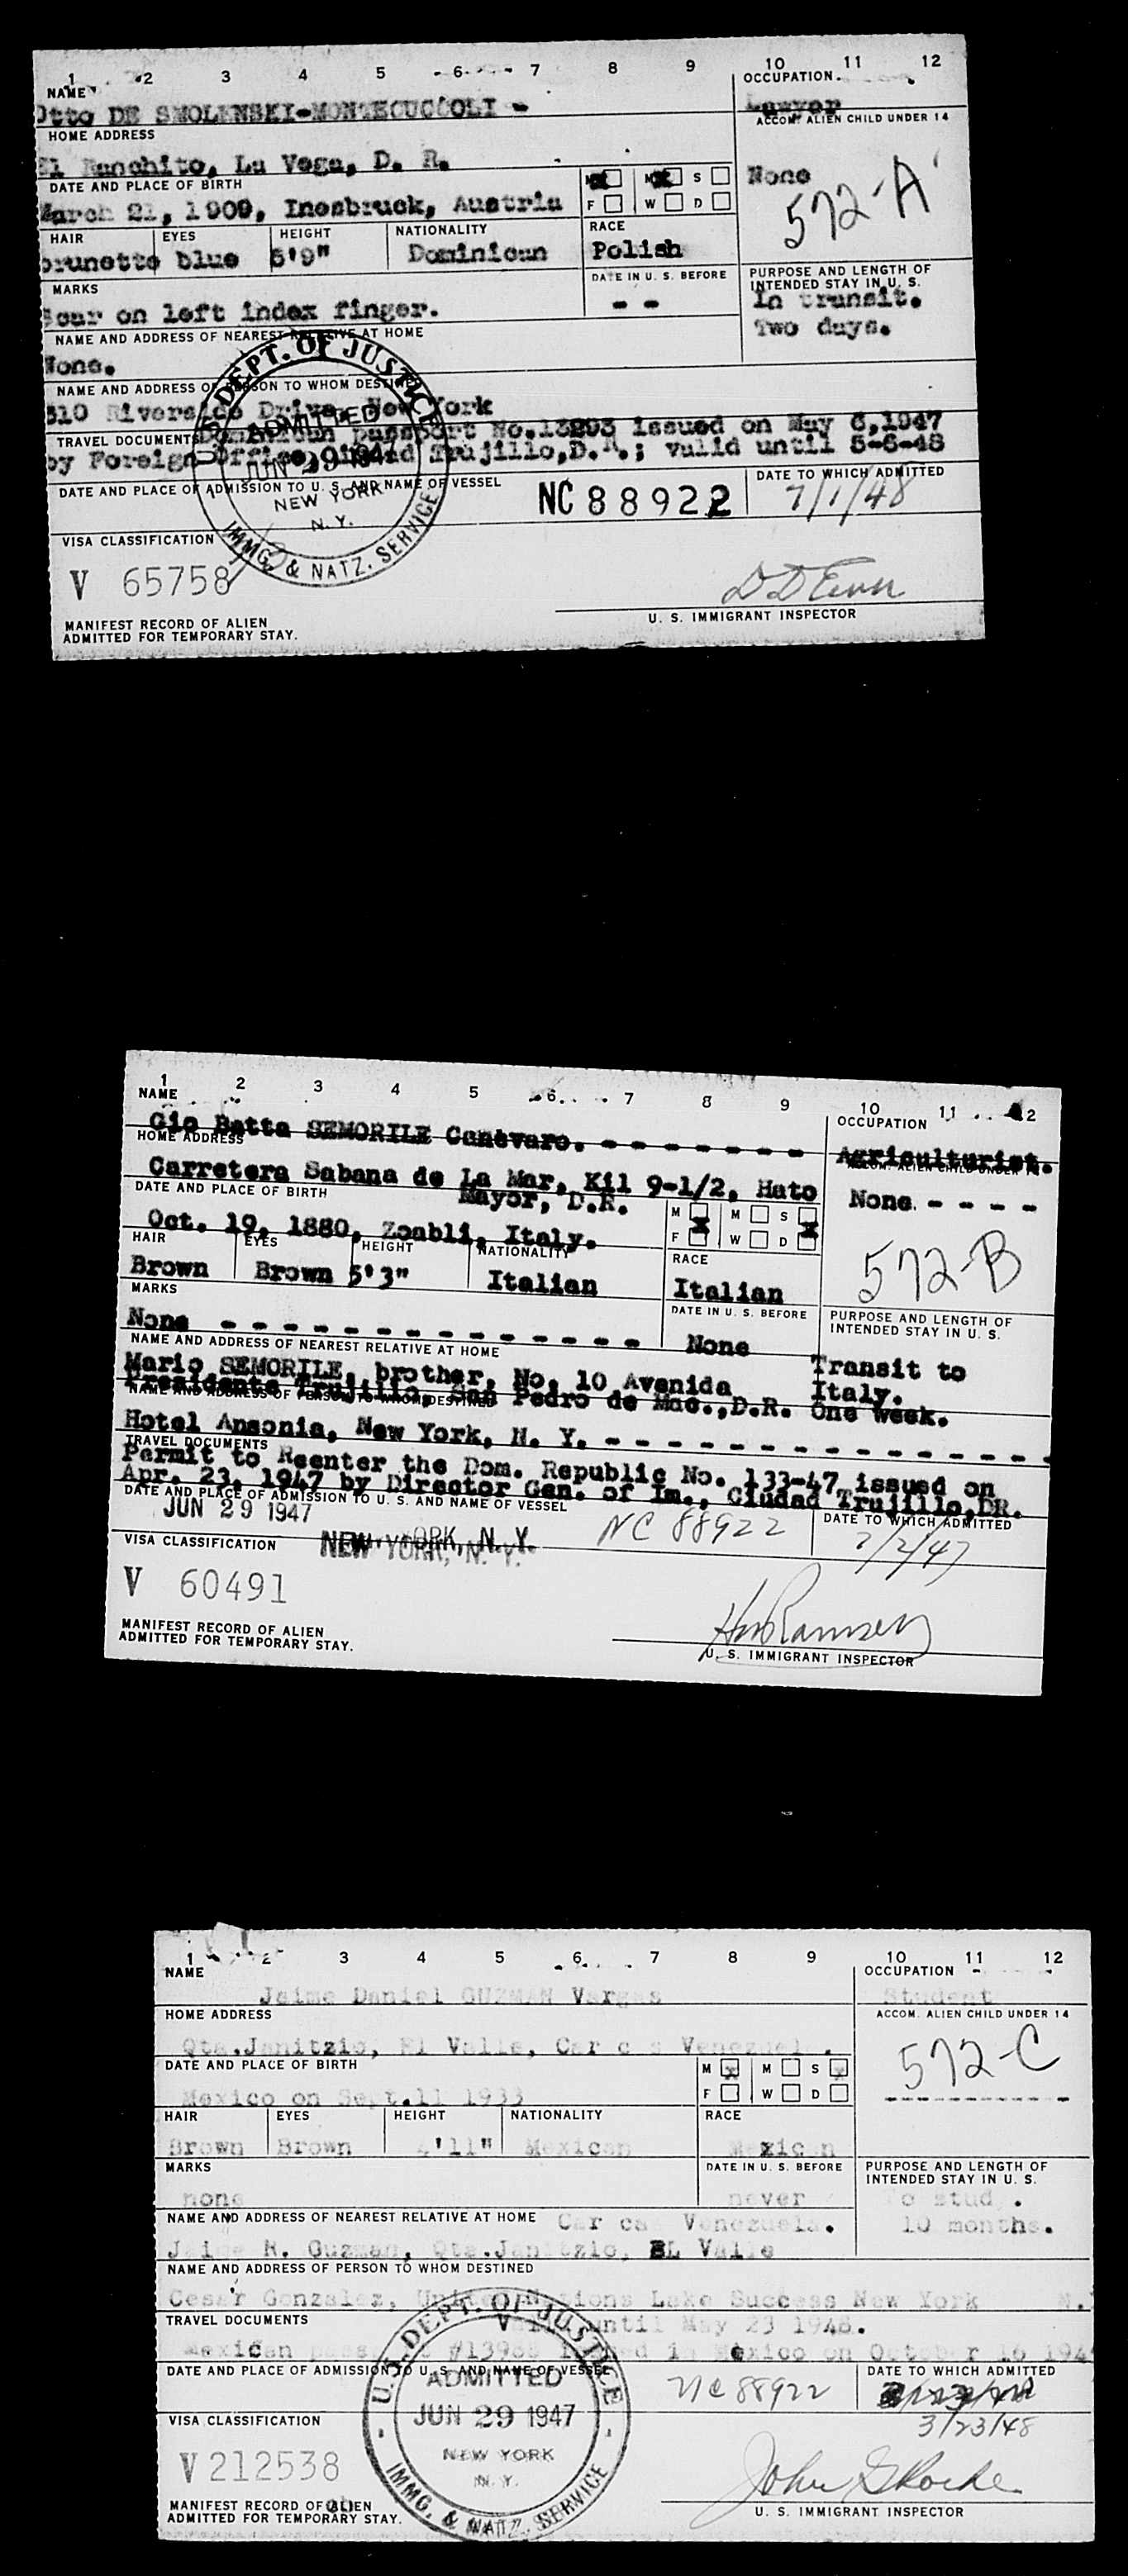 1 2 3 4 5 6 7 8 9 10 11 12
NAME OCCUPATION
Otto DE SMOLENSKI-MONTECUCCOLI - Lawyer
HOME ADDRESS ACCOM. ALIEN CHILD UNDER 14
El Ranchito, La Vega, D. R. None
572-A
DATE AND PLACE OF BIRTH M M S
March 21, 1909, Innsbruck, Austria F W D
HAIR EYES HEIGHT NATIONALITY RACE
brunette blue 5'9" Dominican Polish
MARKS DATE IN U. S. BEFORE PURPOSE AND LENGTH OF INTENDED STAY IN U. S.
Scar on left index finger. -- In transit.
NAME AND ADDRESS OF NEAREST RELATIVE AT HOME Two days.
None.
NAME AND ADDRESS OF PERSON TO WHOM DESTINED
310 Riverside Drive, New York
TRAVEL DOCUMENTS Dominican passport No.13293 issued on May 6,1947
by Foreign Office, Ciudad Trujillo,D.R.; valid until 5-6-48
DATE AND PLACE OF ADMISSION TO U. S. AND NAME OF VESSEL NC 88922 DATE TO WHICH ADMITTED
7/1/48
U. S. DEPT. OF JUSTICE
ADMITTED
JUN 29 1947
NEW YORK
N. Y.
IMMG. & NATZ. SERVICE
VISA CLASSIFICATION
V 65758
U. S. IMMIGRANT INSPECTOR
MANIFEST RECORD OF ALIEN
ADMITTED FOR TEMPORARY STAY.
1 2 3 4 5 6 7 8 9 10 11 12
NAME OCCUPATION
Gio Batta SEMORILE Canevaro. - - - - - - - Agriculturist.
HOME ADDRESS ACCOM. ALIEN CHILD UNDER 14
Carretera Sabana de La Mar, Kil 9-1/2, Hato None. - - - -
Mayor, D.R.
DATE AND PLACE OF BIRTH M M S
Oct. 19, 1880, Zoabli, Italy. F W D
572-B
HAIR EYES HEIGHT NATIONALITY RACE
Brown Brown 5'3" Italian Italian
MARKS DATE IN U. S. BEFORE PURPOSE AND LENGTH OF INTENDED STAY IN U. S.
None - - - - - - - - - - - - - - None
NAME AND ADDRESS OF NEAREST RELATIVE AT HOME Transit to
Mario SEMORILE, brother, No. 10 Avenida Italy.
Presidente Trujillo, San Pedro de Mac.,D.R. One week.
NAME AND ADDRESS OF PERSON TO WHOM DESTINED
Hotel Ansonia, New York, N. Y. - - - - - - - - - - - - - - -
TRAVEL DOCUMENTS
Permit to Reenter the Dom. Republic No. 133-47 issued on
Apr. 23, 1947 by Director Gen. of Im., Ciudad Trujillo,DR.
DATE AND PLACE OF ADMISSION TO U. S. AND NAME OF VESSEL DATE TO WHICH ADMITTED
JUN 29 1947 NC 88922 7/2/47
VISA CLASSIFICATION NEW YORK, N. Y.
V 60491
U. S. IMMIGRANT INSPECTOR
MANIFEST RECORD OF ALIEN
ADMITTED FOR TEMPORARY STAY.
1 2 3 4 5 6 7 8 9 10 11 12
NAME OCCUPATION
Jaime Daniel GUZMAN Vargas Student
HOME ADDRESS ACCOM. ALIEN CHILD UNDER 14
Qta.Janitzio, El Valle, Caracas Venezuela.
572-C
DATE AND PLACE OF BIRTH M M S
Mexico on Sept.11 1933 F W D
HAIR EYES HEIGHT NATIONALITY RACE
Brown Brown 4'11" Mexican Mexican
MARKS DATE IN U. S. BEFORE PURPOSE AND LENGTH OF INTENDED STAY IN U. S.
none never To study.
NAME AND ADDRESS OF NEAREST RELATIVE AT HOME Caracas Venezuela. 10 months.
Jaime R. Guzman, Qta.Janitzio, EL Valle
NAME AND ADDRESS OF PERSON TO WHOM DESTINED
Cesar Gonzalez, United Nations Lake Success New York N.
TRAVEL DOCUMENTS until May 23 1948.
Mexican issued in Mexico on October 194
DATE AND PLACE OF ADMISSION TO U. S. AND NAME OF VESSEL DATE TO WHICH ADMITTED
NC 88922
3/23/48
U. S. DEPT. OF JUSTICE
ADMITTED
JUN 29 1947
NEW YORK
N. Y.
IMMG. & NATZ. SERVICE
VISA CLASSIFICATION
V 212538
U. S. IMMIGRANT INSPECTOR
MANIFEST RECORD OF ALIEN
ADMITTED FOR TEMPORARY STAY.